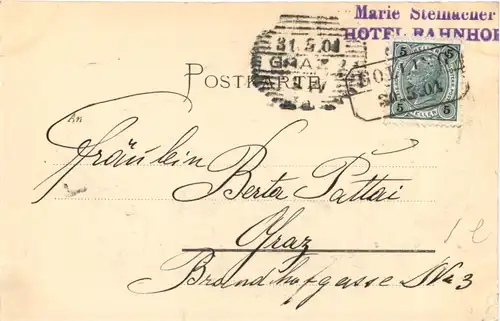 Marie Steinacher
HOTEL BAHNHOF
31.5.01
GRAZ
POSTKARTE
5 5
5 5
5.01
An
Fräulein
Berta Pattai
Graz
Brandhofgasse No 3